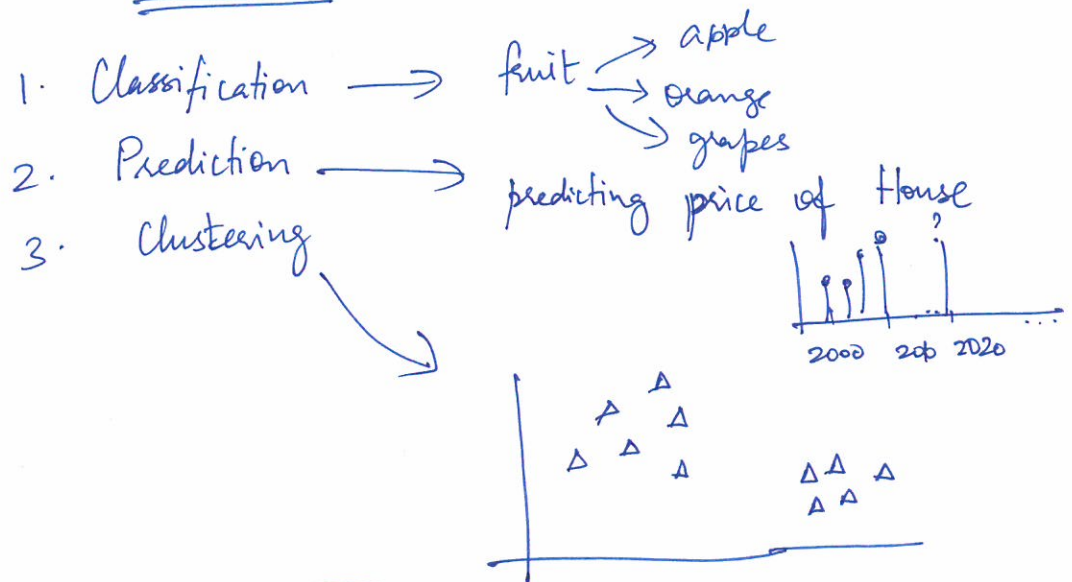 1. Classification → fruit → apple
→ orange
→ grapes
2. Prediction → predicting price of House
3. Clustering
?
2000 2010 2020 ...